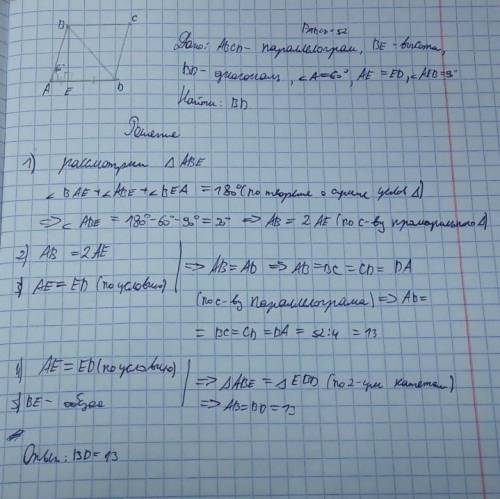 B C
A E D
60°
P ABCD = 52
Дано: ABCD - параллелограм, BE - высота,
BD - диагональ, ∠A = 60°, AE = ED, ∠AED = 9°
Найти: BD
Решение
1) рассмотрим △ ABE
∠ BAE + ∠ ABE + ∠ BEA = 180° (по теореме о сумме углов △)
⇒ ∠ ABE = 180° - 60° - 90° = 30° ⇒ AB = 2 AE (по с-ву прямоугольного △)
2) AB = 2AE
3) AE = ED (по условию)
⇒ AB = AD ⇒ AB = BC = CD = DA
(по с-ву параллелограма) ⇒ AD =
= BC = CD = DA = 52 : 4 = 13
4) AE = ED (по условию)
5) BE - общее
⇒ △ ABE = △ EBD (по 2-ум катетам)
⇒ AB = BD = 13
Ответ: BD = 13